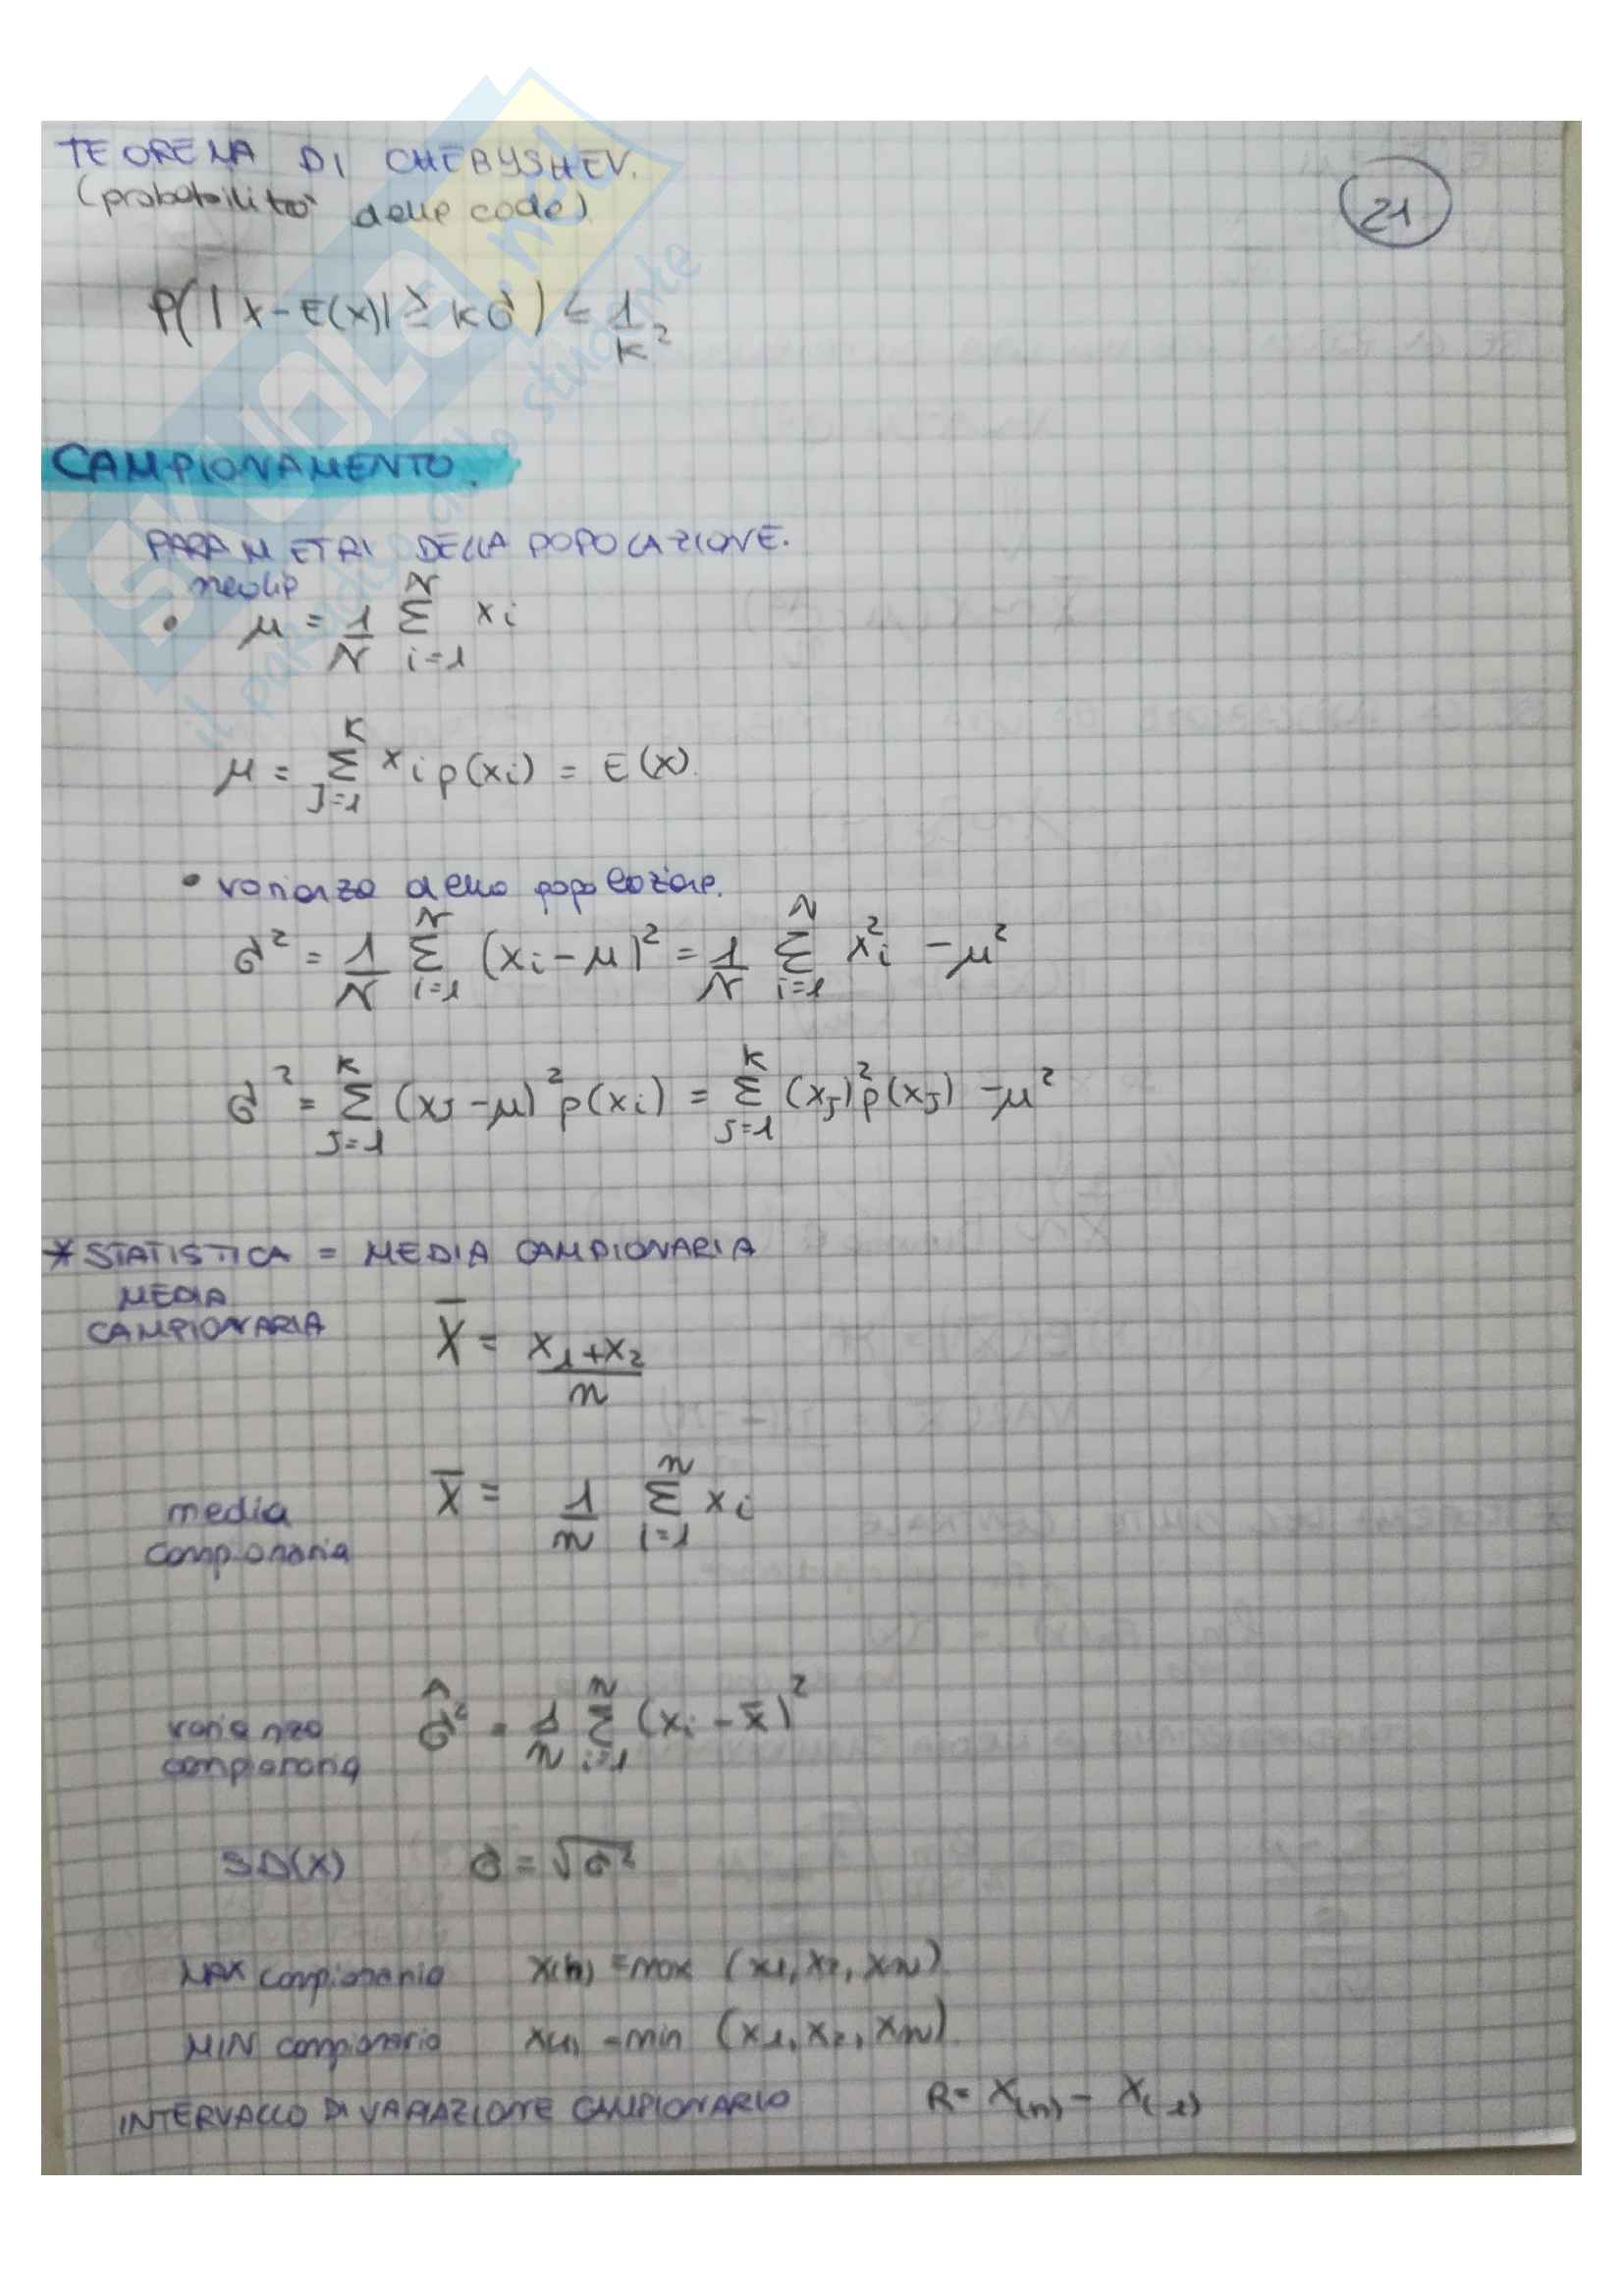 TEOREMA DI CHEBYSHEV.
(probabilità delle code)
21
P(|X-E(X)| ≥ Kσ) ≤ 1/K²
CAMPIONAMENTO.
PARAMETRI DELLA POPOLAZIONE.
media
• μ = 1/N Σ_{i=1}^{N} xi
μ = Σ_{J=1}^{K} xi p(xi) = E(X).
• varianza della popolazione.
σ² = 1/N Σ_{i=1}^{N} (xi-μ)² = 1/N Σ_{i=1}^{N} xi² - μ²
σ² = Σ_{J=1}^{K} (xJ-μ)² p(xi) = Σ_{J=1}^{K} (xJ)² p(xJ) - μ²
* STATISTICA = MEDIA CAMPIONARIA
MEDIA
CAMPIONARIA
X̄ = (x1+x2)/n
media
campionaria
X̄ = 1/n Σ_{i=1}^{n} xi
varianza
campionaria
σ̂² = 1/n Σ_{i=1}^{n} (xi - x̄)²
SD(X) σ = √σ²
MAX campionario X(n) = max (x1, x2, xn)
MIN campionario X(1) = min (x1, x2, xn)
INTERVALLO DI VARIAZIONE CAMPIONARIO R = X(n) - X(1)
SKUOLA.net
il paradiso dello studente